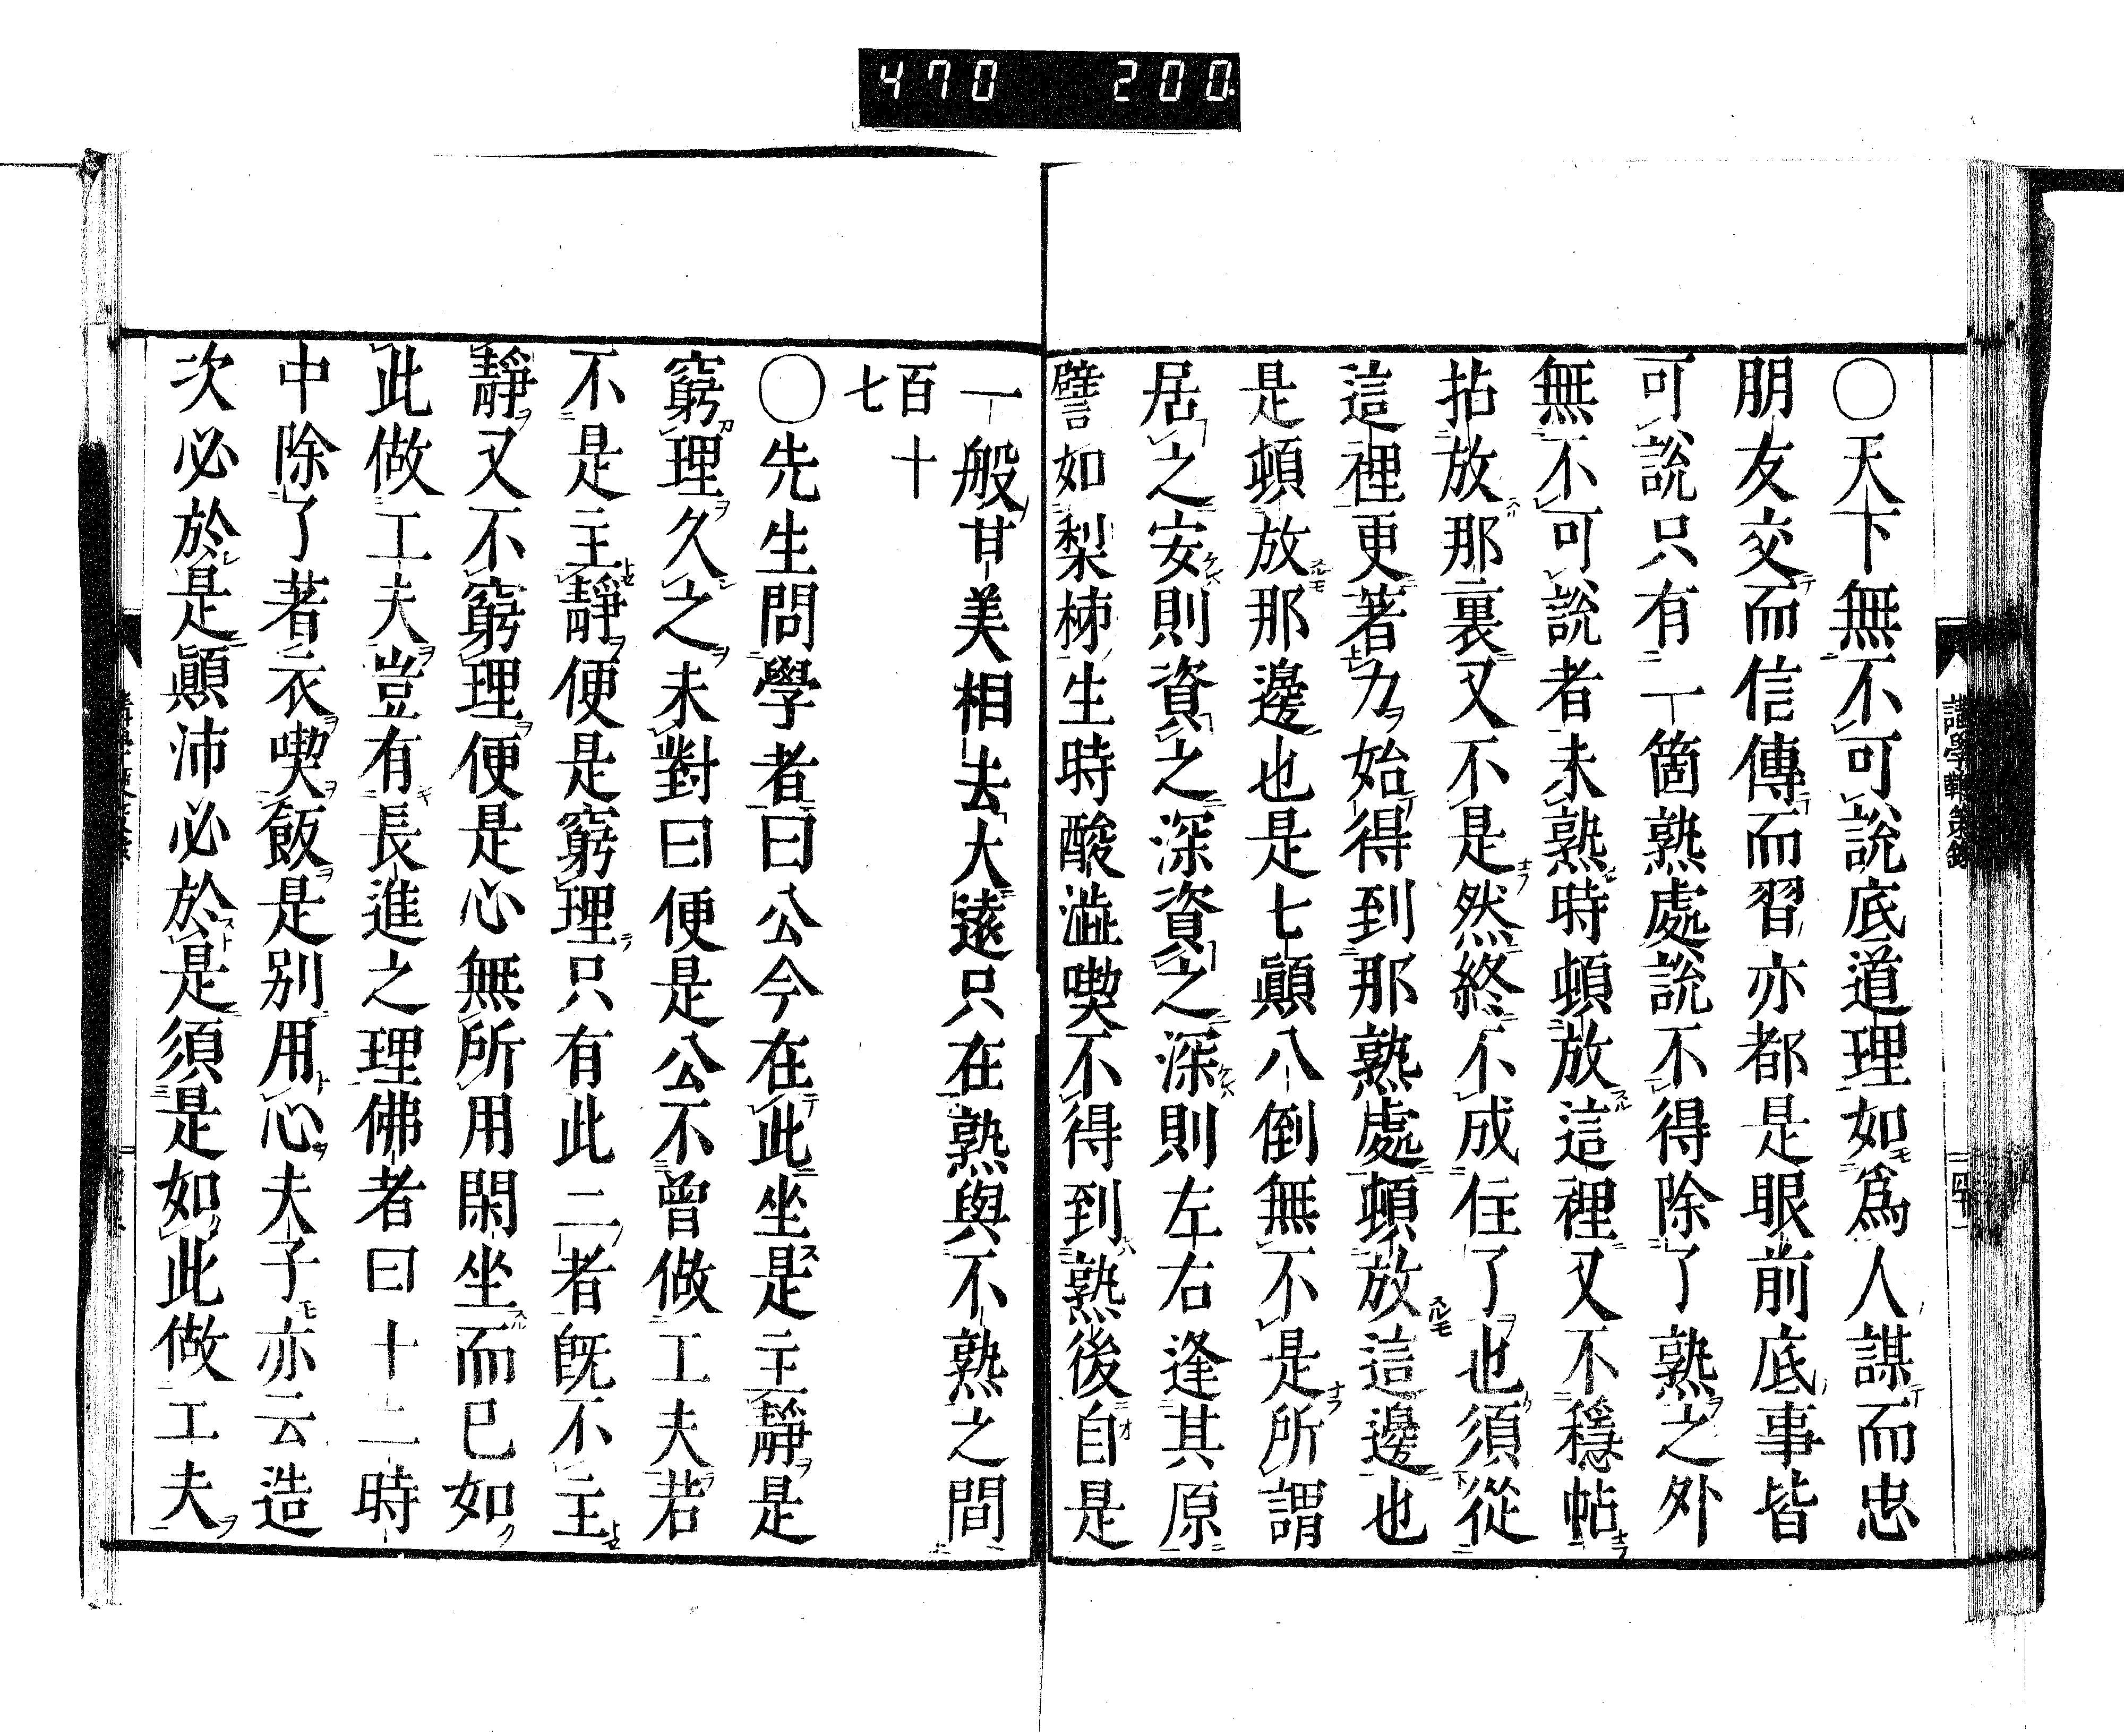 470 200
○天下無不可說底道理如爲人謀而忠
朋友交而信傳而習亦都是眼前底事皆
可說只有一箇熟處說不得除了熟之外
無不可說者未熟時頓放這裡又不穩帖
拈放那裏又不是然終不成住了也須從
這裡更著力始得到那熟處頓放這邊也
是頓放那邊也是七顛八倒無不是所謂
居之安則資之深資之深則左右逢其原
譬如梨柹生時酸澁喫不得到熟後自是
一般甘美相去大遠只在熟與不熟之間
百十
七
○先生問學者曰公今在此坐是主靜是
窮理久之未對曰便是公不曾做工夫若
不是主靜便是窮理只有此二者旣不主
靜又不窮理便是心無所用閑坐而已如
此做工夫豈有長進之理佛者曰十二時
中除了著衣喫飯是別用心夫子亦云造
次必於是顛沛必於是須是如此做工夫